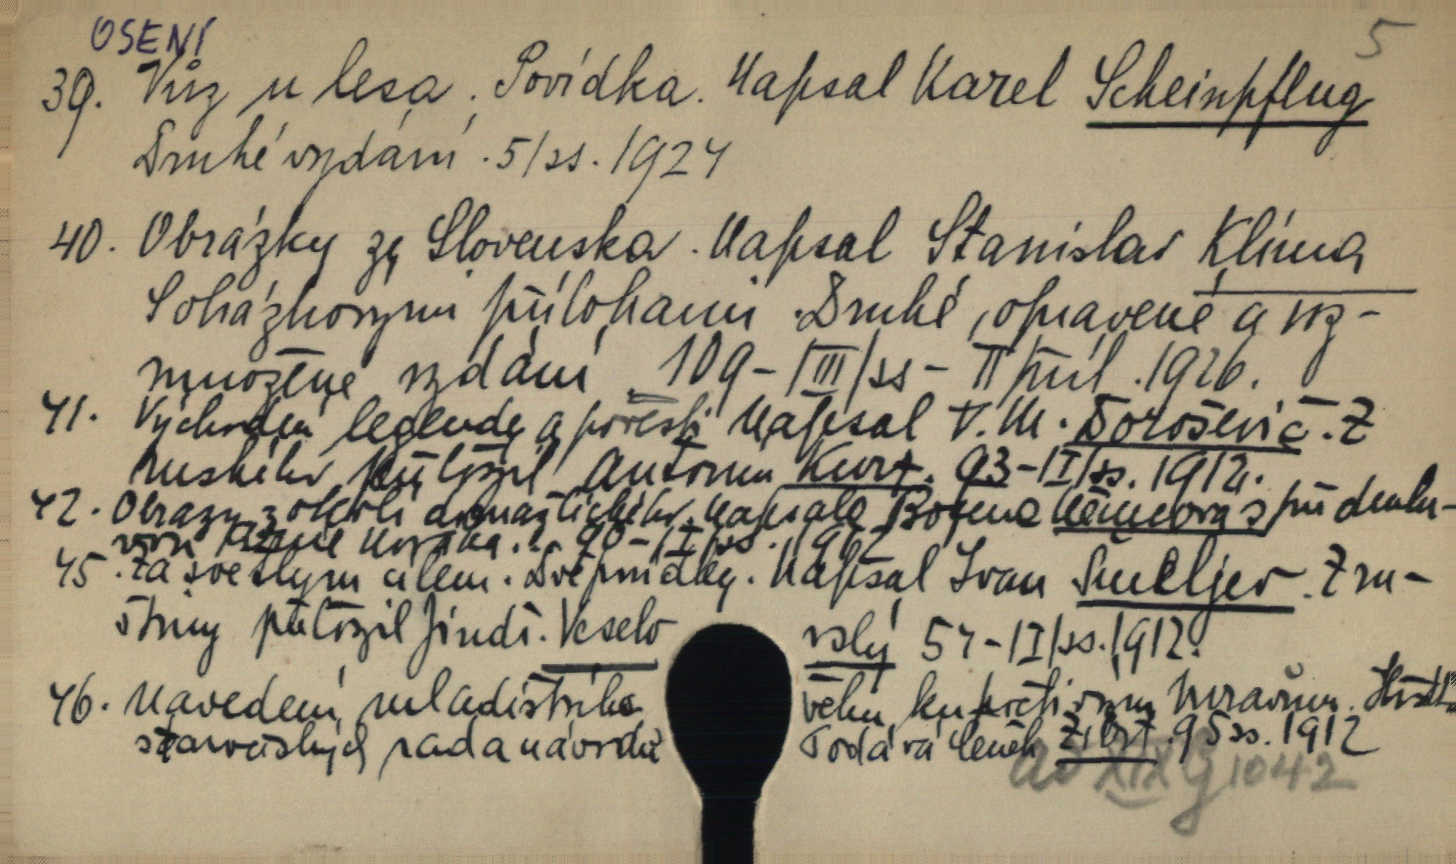 OSENÍ
5
39. Vůz u lesa. Povídka. Napsal Karel Scheinpflug
Druhé vydání. 5/ss. 1924
40. Obrázky ze Slovenska. Napsal Stanislav Klíma
S obrázkovými přílohami. Druhé, opravené a roz-
množené vydání 109-/III/ss-II příl. 1926.
41. Východní legendy a pověsti Napsal V. M. Doroševič. Z
ruského přeložil Antonín Kurz. 93-/I/ss. 1912.
42. Obrazy z okolí domažlického. Napsala Božena Němcova S při
90-/I/ss. 1912
45. Za světlým cílem. Dvě povídky. Napsal Ivan Šmeljev. Z ru-
štiny přeložil Jindř. Veselo vský 54-/I/ss. 1912.
46. Navedení mladistvého věku ku poctivým mravům.
staročeských rad a návodů Podává Čeněk Zíbrt. 95 ss. 1912
XIX G 1042